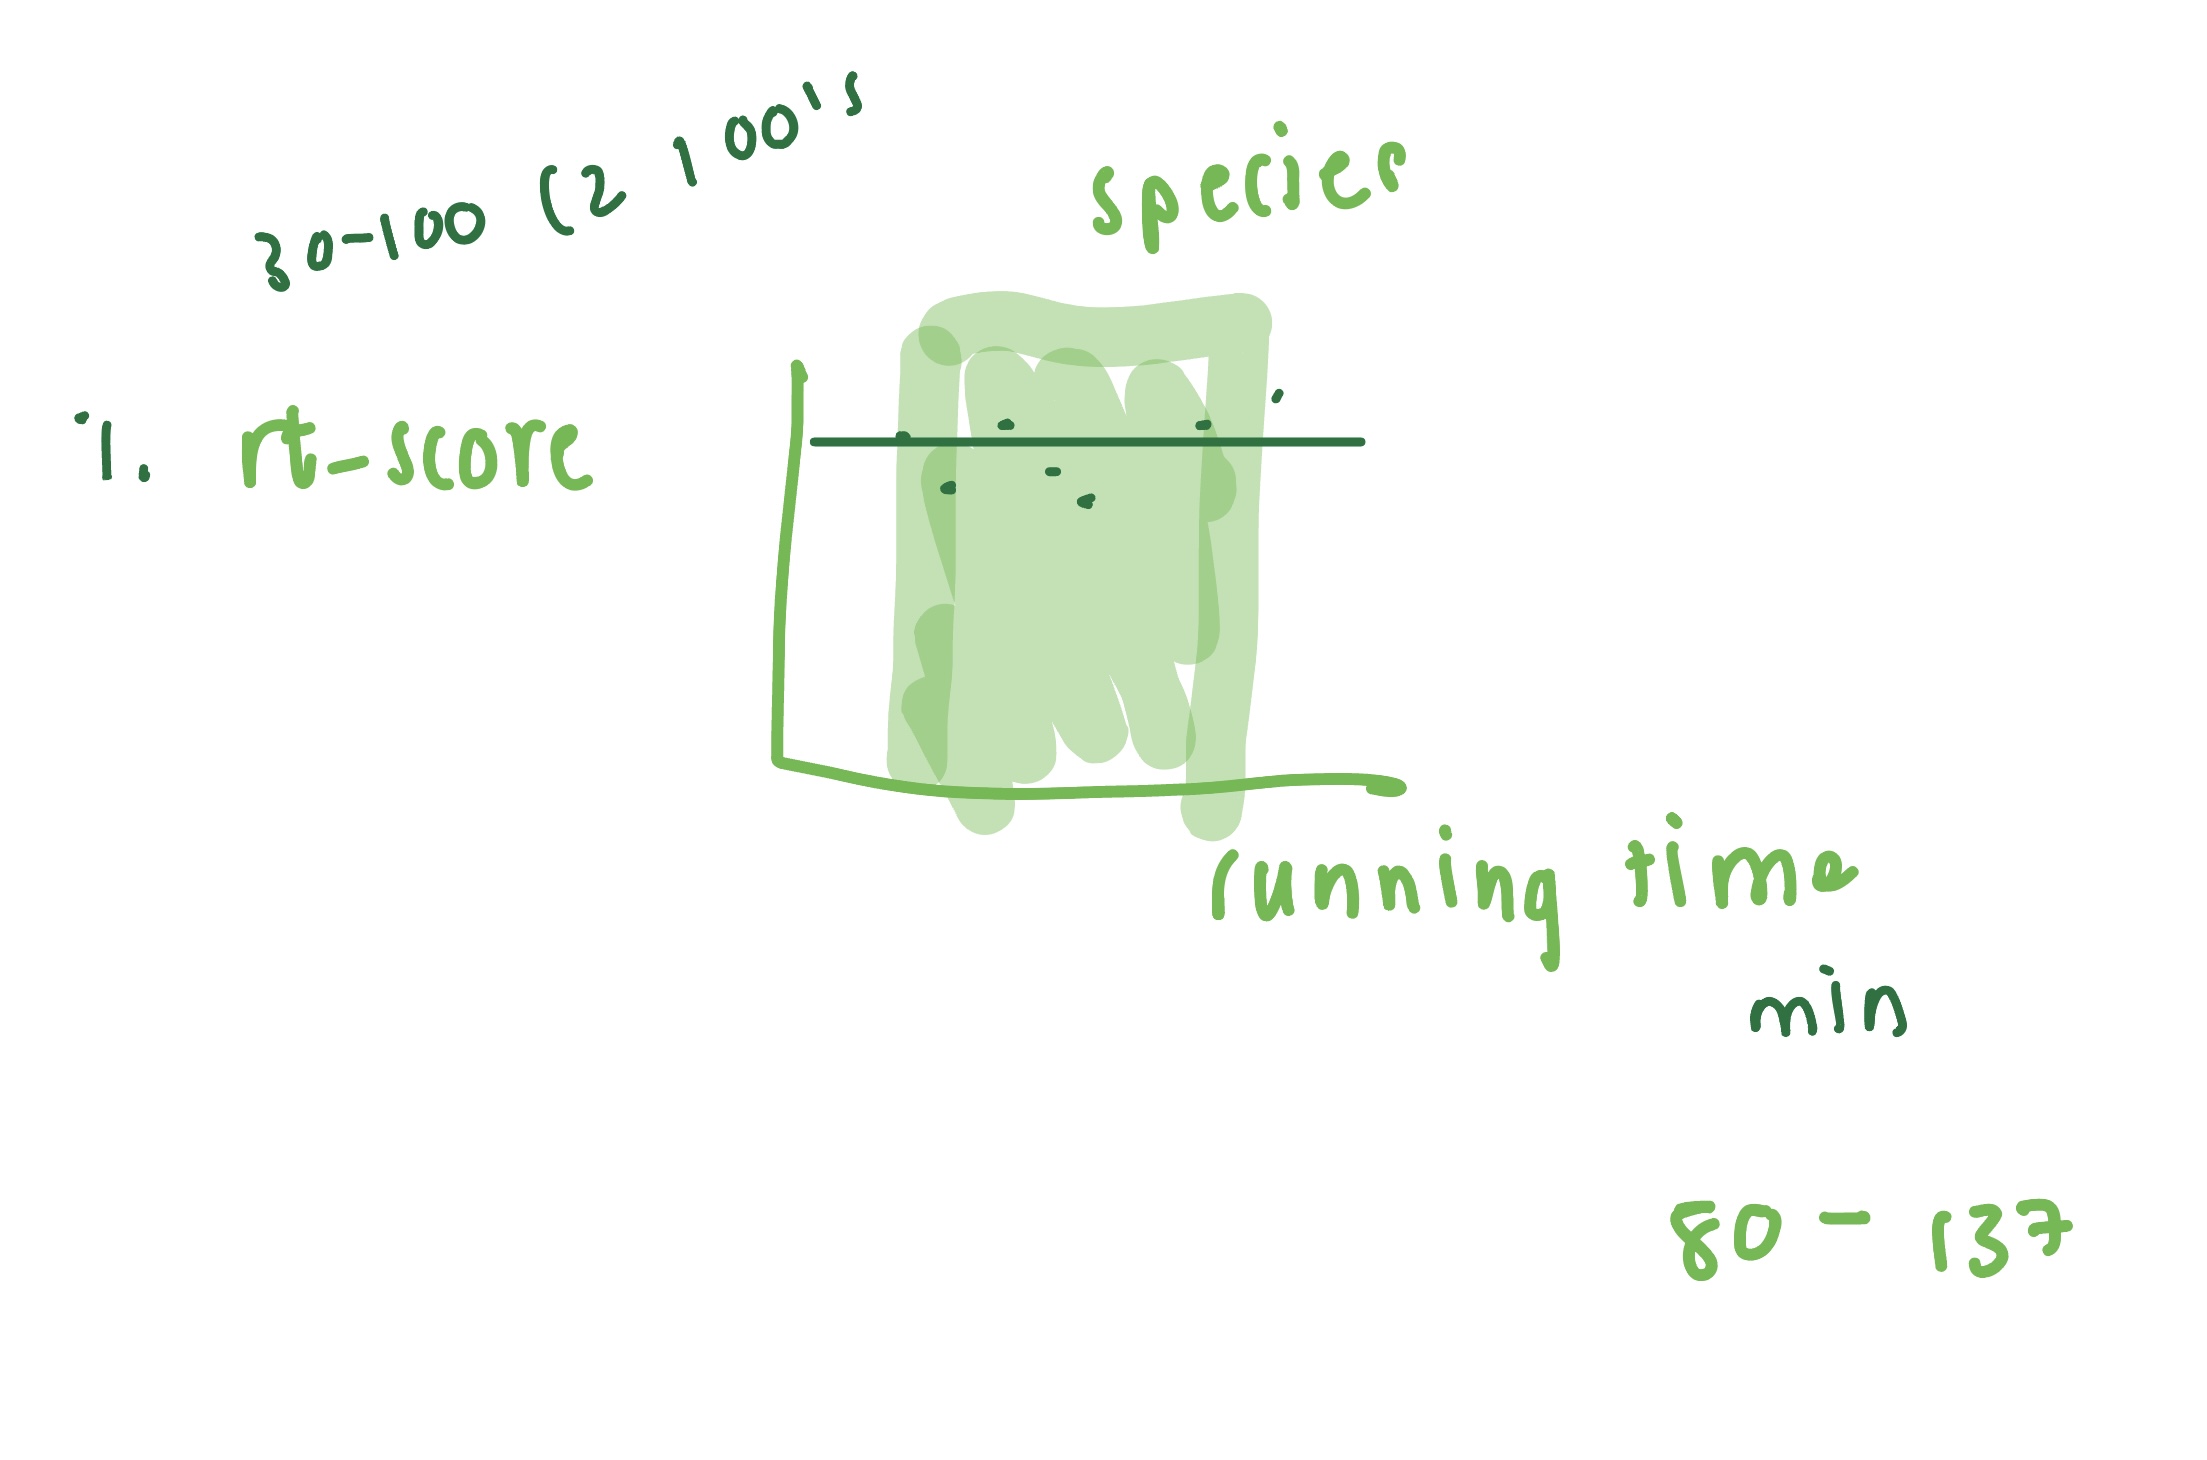 30-100 (2 100's
species
1. rt-score
running time
min
80 - 137